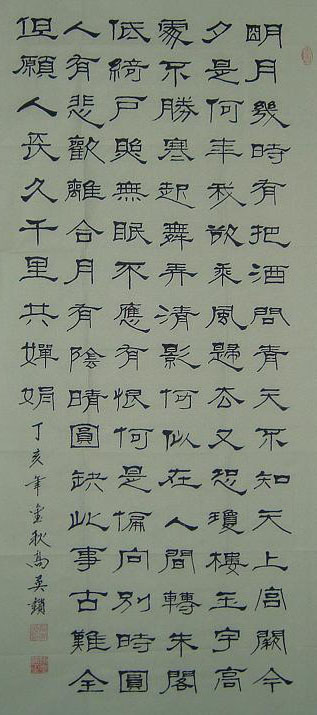 明月幾時有把酒問青天不知天上宮闕今
夕是何年我欲乘風歸去又恐瓊樓玉宇高
處不勝寒起舞弄清影何似在人間轉朱閣
低綺戶照無眠不應有恨何是偏向別時圓
人有悲歡離合月有陰晴圓缺此事古難全
但願人長久千里共嬋娟
丁亥年秋高英鎖